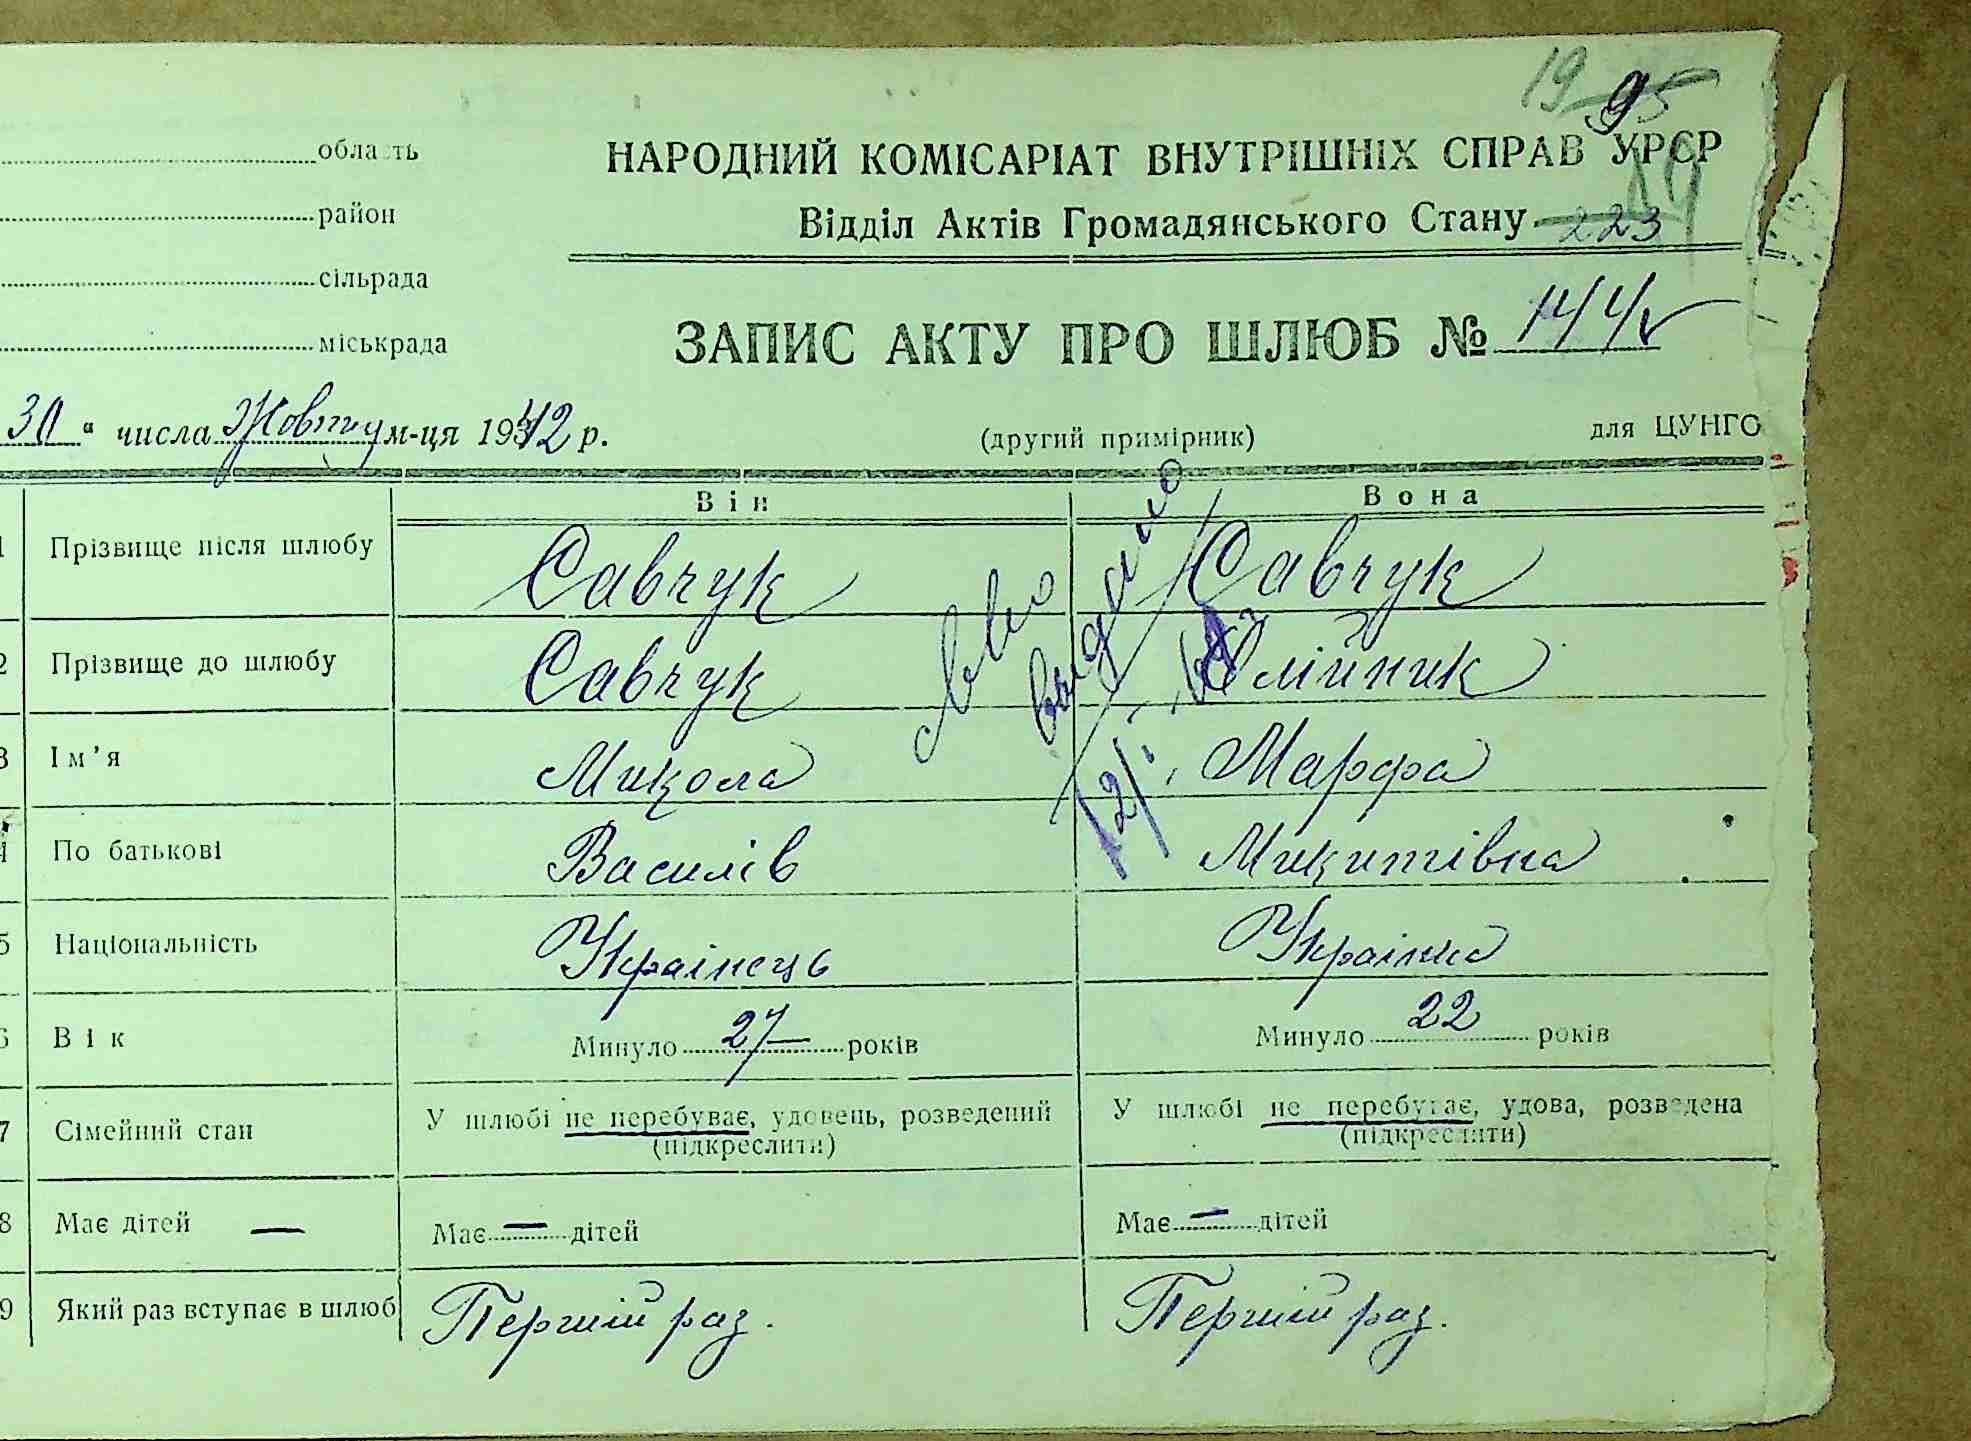 19 95
9
область
НАРОДНИЙ КОМІСАРІАТ ВНУТРІШНІХ СПРАВ УРСР
район
Відділ Актів Громадянського Стану 223
сільрада
міськрада
ЗАПИС АКТУ ПРО ШЛЮБ №
30 " числа Жовтня м-ця 1942 р.
(другий примірник)
для ЦУНГО
Він Вона
1 Прізвище після шлюбу Савчук Савчук
2 Прізвище до шлюбу Савчук Олійник
3 Ім'я Микола Марфа
4 По батькові Василів Микитівна
5 Національність Українець Українка
6 Вік Минуло 27 років Минуло 22 років
7 Сімейний стан У шлюбі не перебуває, удовець, розведений У шлюбі не перебуває, удова, розведена
(підкреслити) (підкреслити)
8 Має дітей — Має — дітей Має — дітей
9 Який раз вступає в шлюб Перший раз. Перший раз.
св-во
выдано